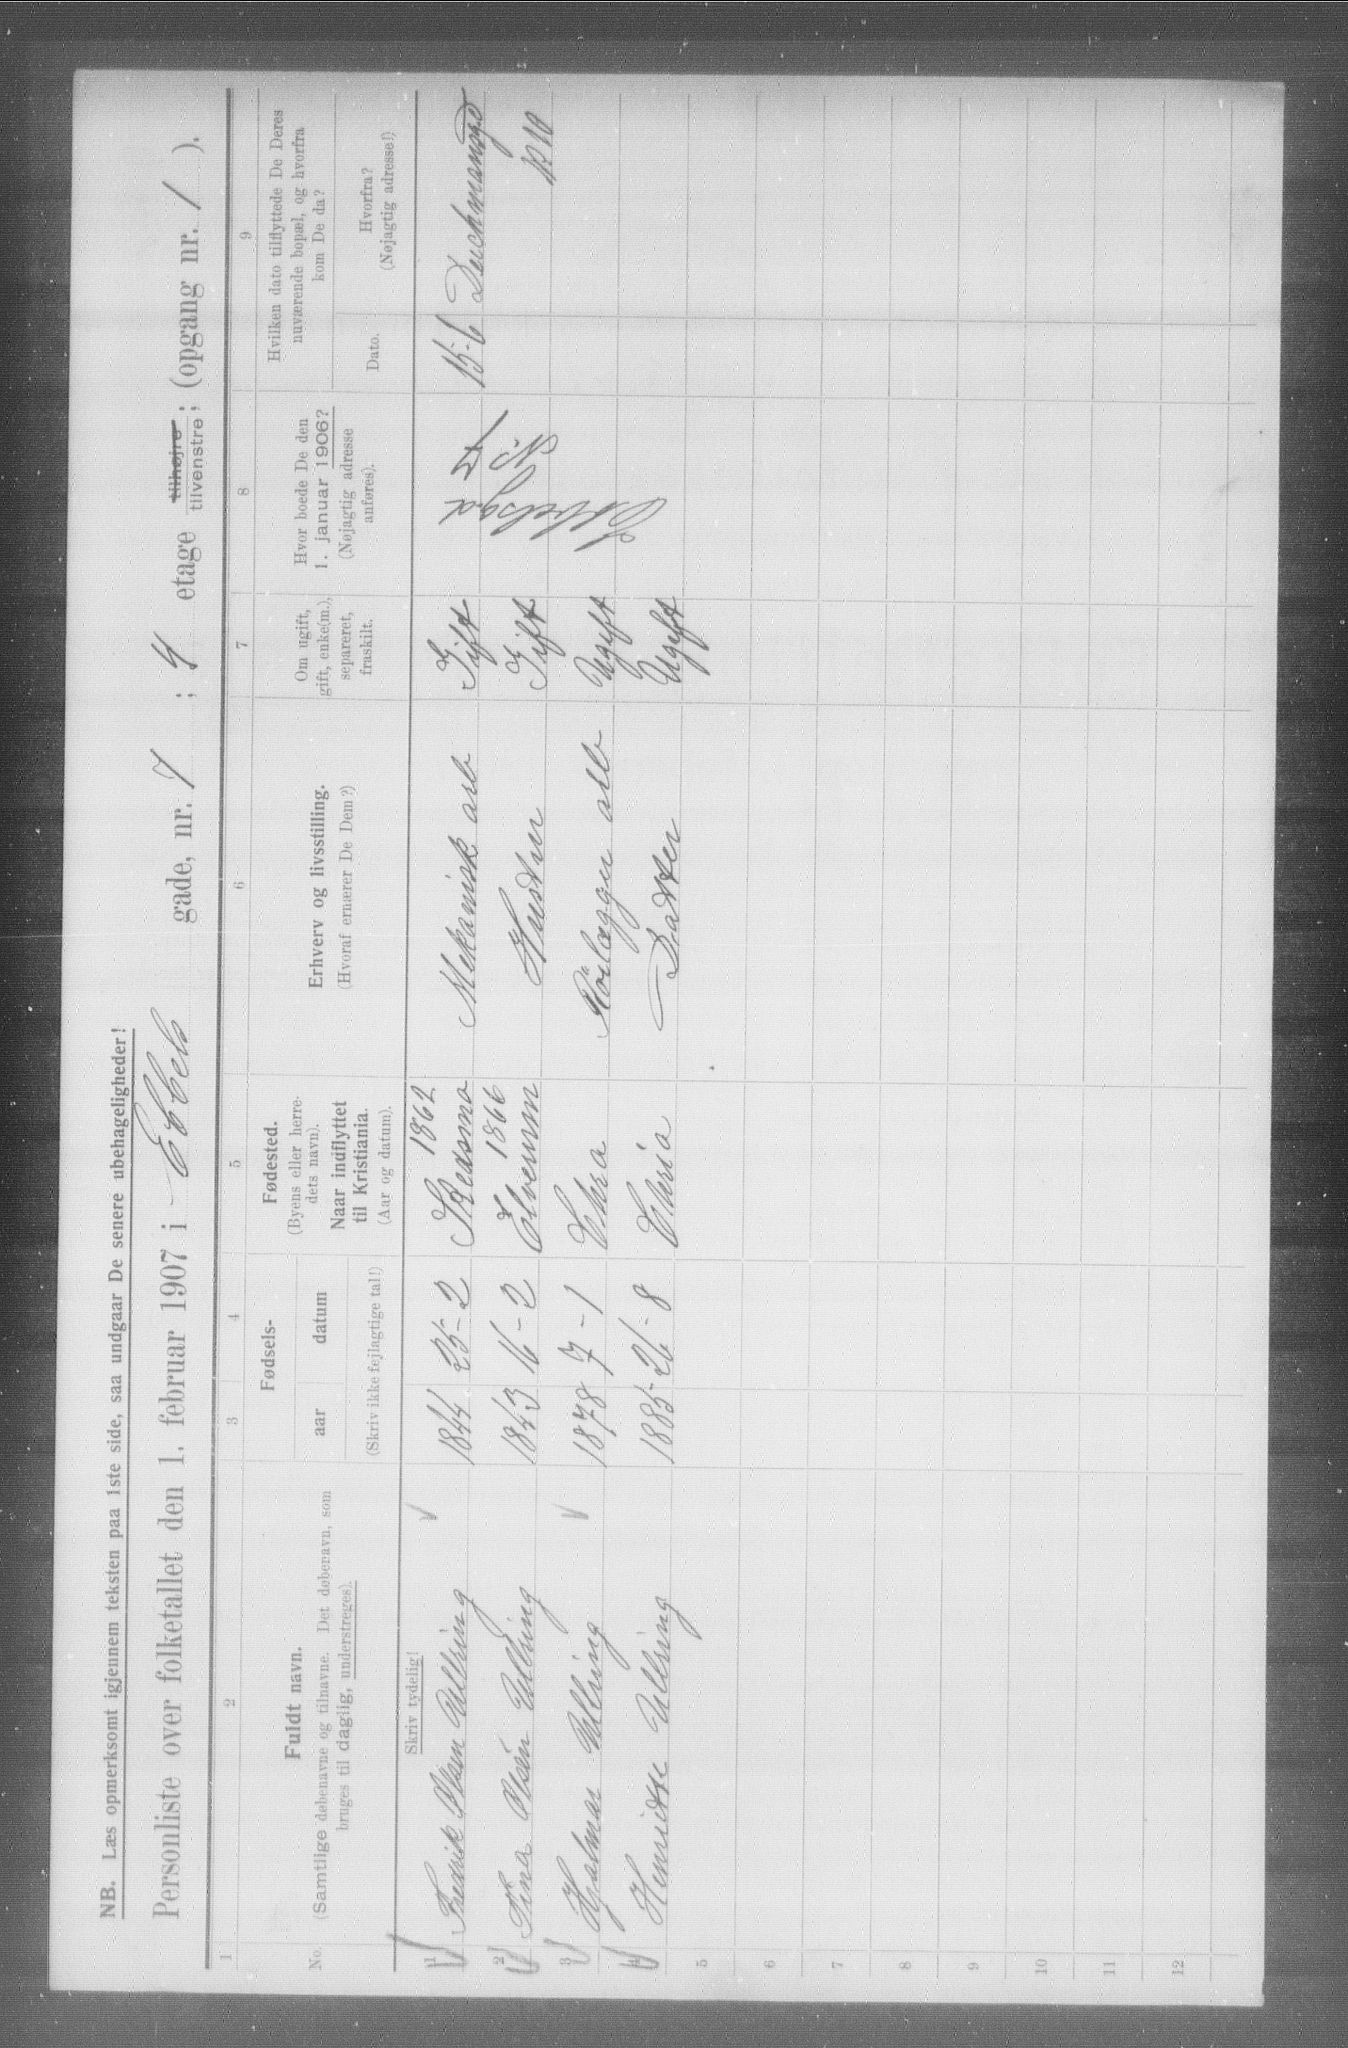 NB. Læs opmerksomt igjennem teksten paa 1ste side, saa undgaar De senere ubehageligheder!
Personliste over folketallet den 1. februar 1907 i Ebbels gade, nr. 7; 4 etage tilhøjre; tilvenstre; (opgang nr. 1).
1 2 3 4 5 6 7 8 9
No.
Fuldt navn.
(Samtlige døbenavne og tilnavne. Det døbenavn, som
bruges til daglig, understreges).
Skriv tydelig!
Fødsels-
aar datum
(Skriv ikke fejlagtige tal!)
Fødested.
(Byens eller herre-
dets navn).
Naar indflyttet
til Kristiania.
(Aar og datum).
Erhverv og livsstilling.
(Hvoraf ernærer De Dem?)
Om ugift,
gift, enke(m.),
separeret,
fraskilt.
Hvor boede De den
1. januar 1906?
(Nøjagtig adresse
anføres).
Hvilken dato tilflyttede De Deres
nuværende bopæl, og hvorfra
kom De da?
Dato.
Hvorfra?
(Nøjagtig adresse!)
1862
1 Fredrik Olsen Ullring 1844 25-2 Mekanisk arb Gift 15-6
1866
2 Tina Olsen Ullring 1843 16-2 Elverum Hustru Gift
N 10
3 Hjalmar Ullring 1878 7-1 Chra Rörlægger arb Ugift
4 Henriette Ullring 1885 26-8 Chria Datter Ugift
5
6
7
8
9
10
11
12